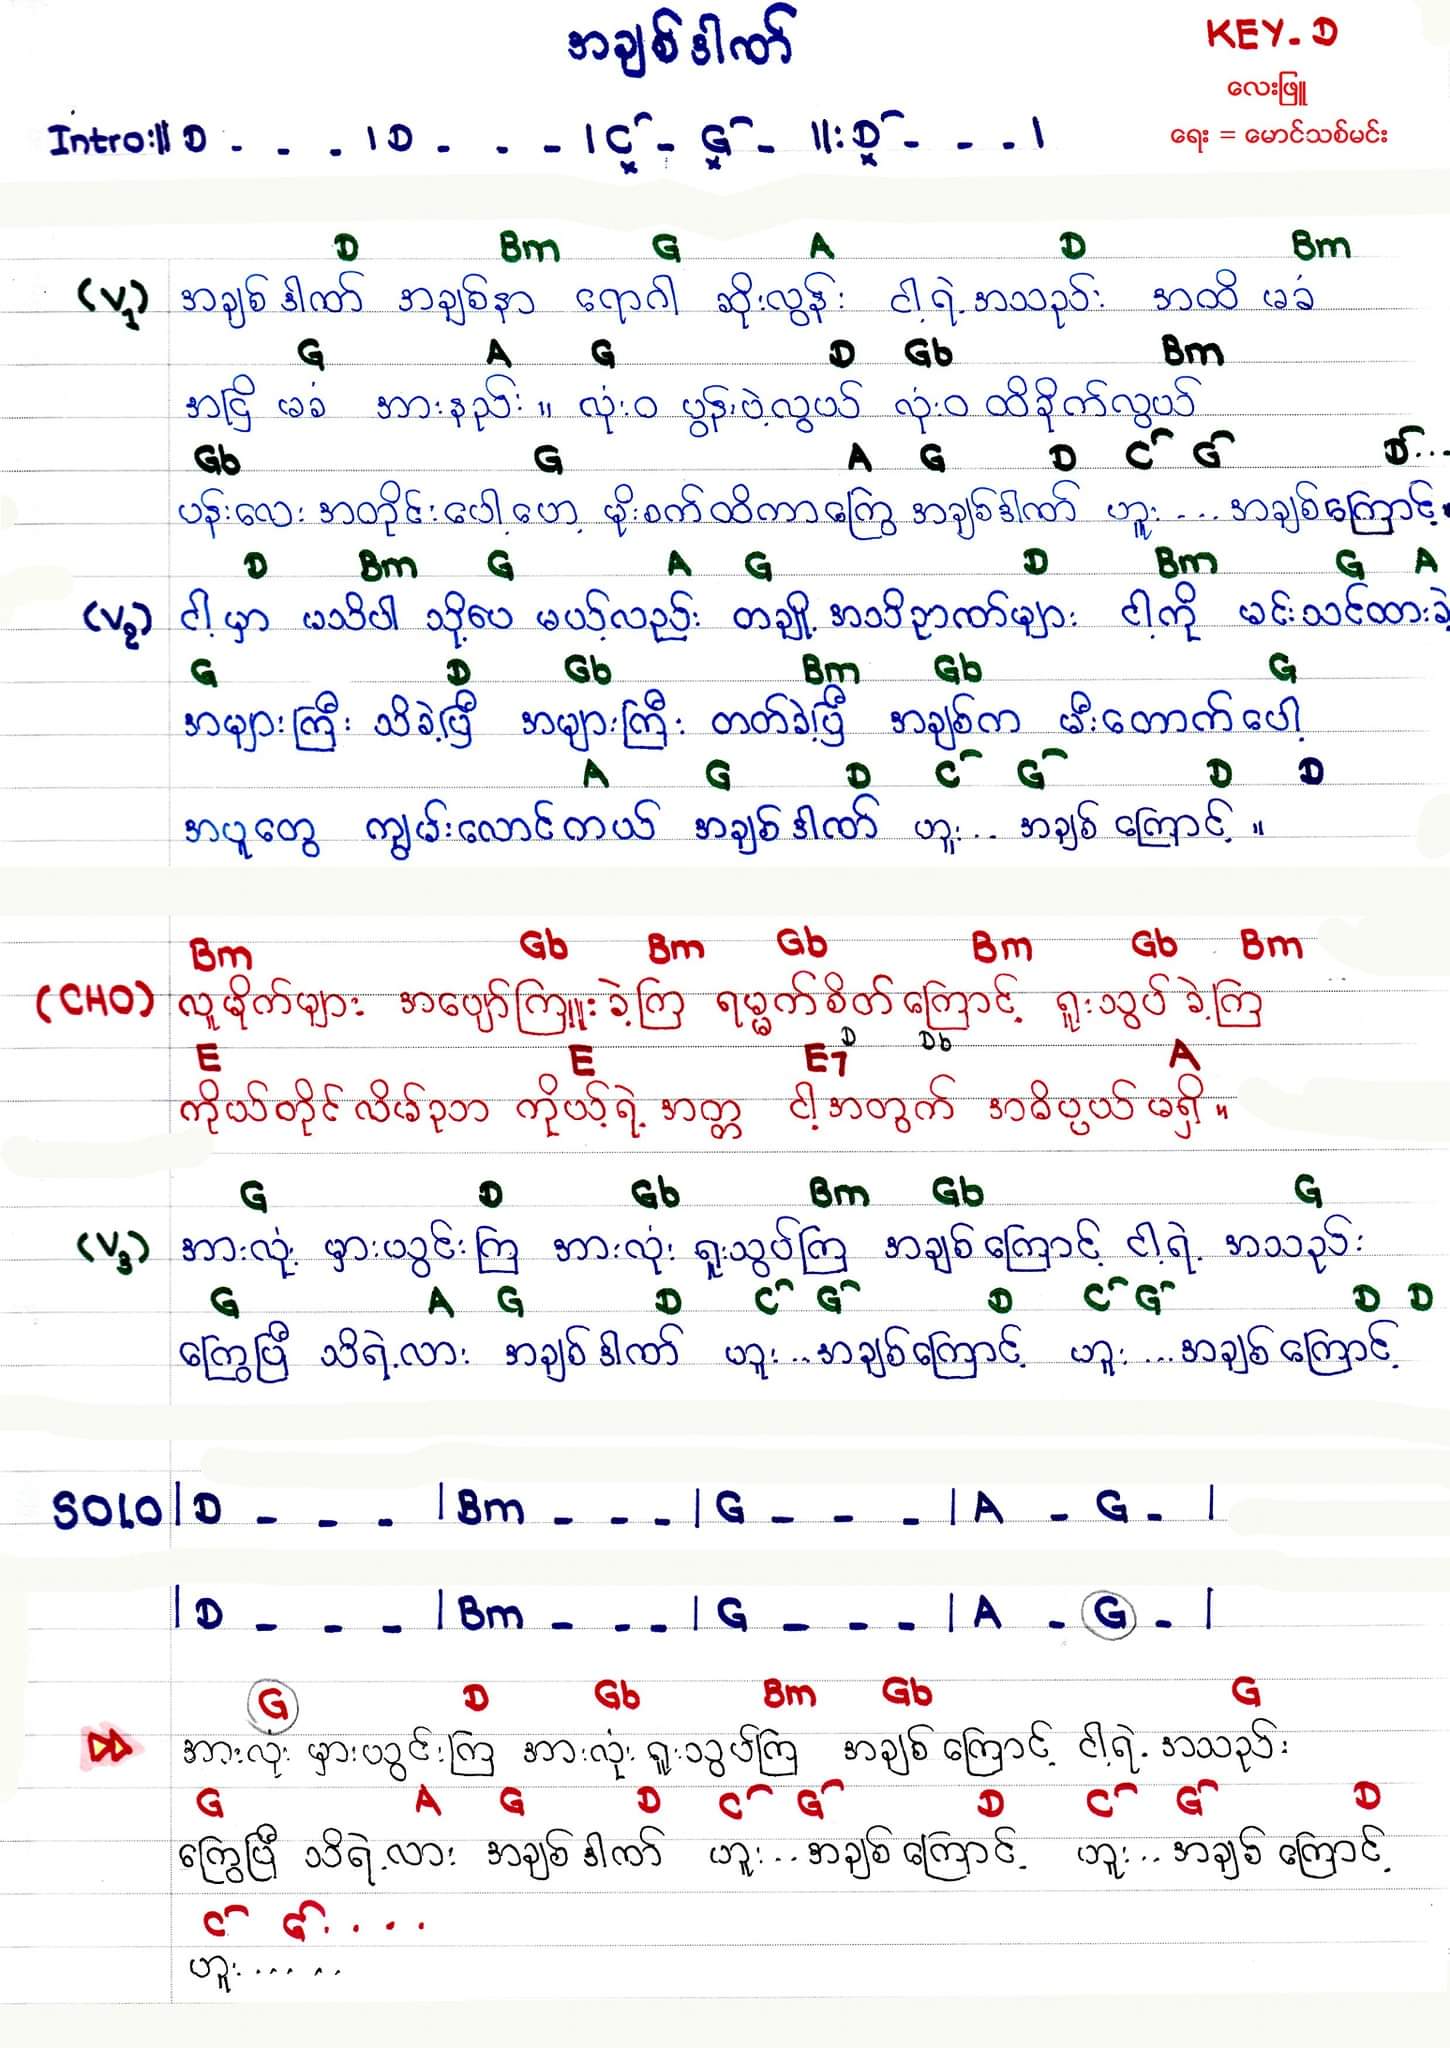 အချစ်ဒဏ်
KEY-D
လေးဖြူ
ရေး = မောင်သစ်မင်း
Intro:|| D - - - | D - - - | C - G - ||: D - - - |
D Bm G A D Bm
(V1) အချစ်ဒဏ် အချစ်နာ ရောဂါ ဆိုးလွန်း ငါ့ရဲ့အသည်း အထိ မခံ
G A G D Gb Bm
အငြိ မခံ အားနည်း ။ လုံးဝ ပွန်းပဲ့လွယ် လုံးဝ ထိခိုက်လွယ်
Gb G A G D C G D...
ပန်းလေး အတိုင်းပေါ့ဟေ့ မိုးစက်ထိကာကြွေ အချစ်ဒဏ် ဟူး ... အချစ်ကြောင့်
D Bm G A G D Bm G A
(V2) ငါ့မှာ မသိပါ သို့ပေမယ့်လည်း တချို့အသိဉာဏ်များ ငါ့ကို မင်းသင်ထားခဲ့
G D Gb Bm Gb G
အများကြီး သိခဲ့ပြီ အများကြီး တတ်ခဲ့ပြီ အချစ်က မီးတောက်ပေါ့
A G D C G D D
အပူတွေ ကျွမ်းလောင်တယ် အချစ်ဒဏ် ဟူး.. အချစ်ကြောင့် ။
Bm Gb Bm Gb Bm Gb Bm
(CHO) လူမိုက်များ အပျော်ကြူးခဲ့ကြ ရမ္မက်စိတ်ကြောင့် ရူးသွပ်ခဲ့ကြ
E E E7 D Db A
ကိုယ်တိုင်လိမ်ဥာ ကိုယ့်ရဲ့အတ္တ ငါ့အတွက် အဓိပ္ပယ်မရှိ ။
G D Gb Bm Gb G
(V3) အားလုံး မှားယွင်းကြ အားလုံး ရူးသွပ်ကြ အချစ်ကြောင့် ငါ့ရဲ့ အသည်း
G A G D C G D C G D D
ကြွေပြီ သိရဲ့လား အချစ်ဒဏ် ဟူး..အချစ်ကြောင့် ဟူး ...အချစ်ကြောင့်
SOLO | D - - - | Bm - - - | G - - - | A - G - |
| D - - - | Bm - - - | G - - - | A - G - |
G D Gb Bm Gb G
အားလုံး မှားယွင်းကြ အားလုံး ရူးသွပ်ကြ အချစ်ကြောင့် ငါ့ရဲ့ အသည်း
G A G D C G D C G D
ကြွေပြီ သိရဲ့လား အချစ်ဒဏ် ဟူး..အချစ်ကြောင့် ဟူး..အချစ်ကြောင့်
C G....
ဟူး.....